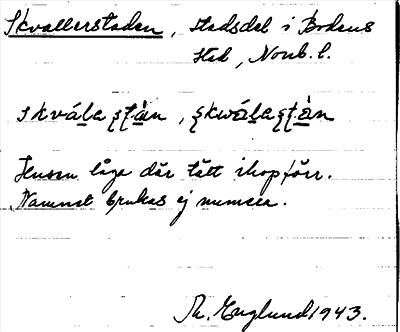 Skvallerstaden, stadsdel i Bodens
stad, Norrb. l.
skvála s̨t̨àn, s̨kwálas̨t̨àn
Husen låga där tätt ihop förr.
Namnet brukas ej numera.
Th. Englund 1943.